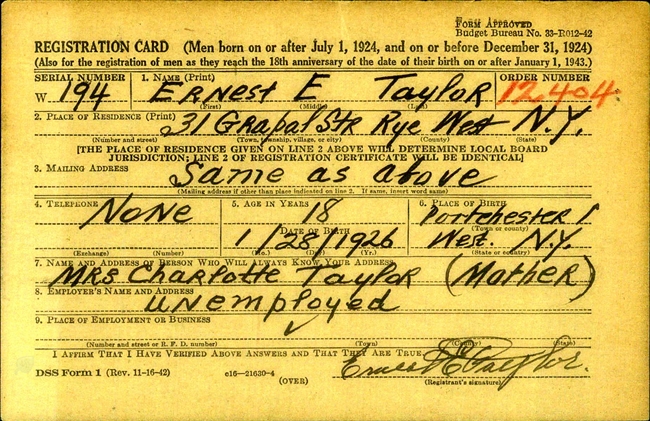 FORM APPROVED
Budget Bureau No. 33-R012-42
REGISTRATION CARD (Men born on or after July 1, 1924, and on or before December 31, 1924)
(Also for the registration of men as they reach the 18th anniversary of the date of their birth on or after January 1, 1943.)
SERIAL NUMBER 1. NAME (Print) ORDER NUMBER
W 194 ERNEST E TAYLOR 12404
(First) (Middle) (Last)
2. PLACE OF RESIDENCE (Print)
31 Grapal Str Rye West N.Y.
(Number and street) (Town, township, village, or city) (County) (State)
[THE PLACE OF RESIDENCE GIVEN ON LINE 2 ABOVE WILL DETERMINE LOCAL BOARD
JURISDICTION; LINE 2 OF REGISTRATION CERTIFICATE WILL BE IDENTICAL]
3. MAILING ADDRESS
Same as above
(Mailing address if other than place indicated on line 2. If same, insert word same)
4. TELEPHONE 5. AGE IN YEARS 6. PLACE OF BIRTH
NONE 18 Portchester
DATE OF BIRTH (Town or county)
1/28/1926 West. N.Y.
(Exchange) (Number) (Mo.) (Day) (Yr.) (State or country)
7. NAME AND ADDRESS OF PERSON WHO WILL ALWAYS KNOW YOUR ADDRESS
Mrs Charlotte Taylor (Mother)
8. EMPLOYER'S NAME AND ADDRESS
unemployed
9. PLACE OF EMPLOYMENT OR BUSINESS
(Number and street or R. F. D. number) (Town) (County) (State)
I AFFIRM THAT I HAVE VERIFIED ABOVE ANSWERS AND THAT THEY ARE TRUE.
Ernest E Taylor.
DSS Form 1 (Rev. 11-16-42) c16—21630-4 (Registrant's signature)
(OVER)